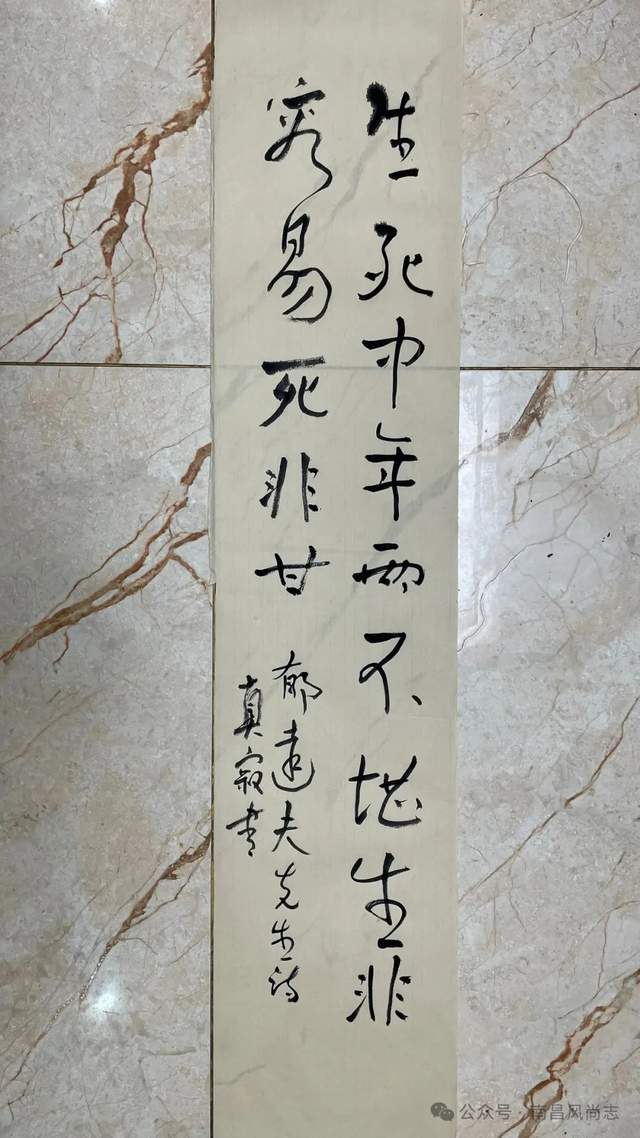 生死中年两不堪生非
容易死非甘
郁達夫先生诗
真寂书
公众号·南昌风尚志